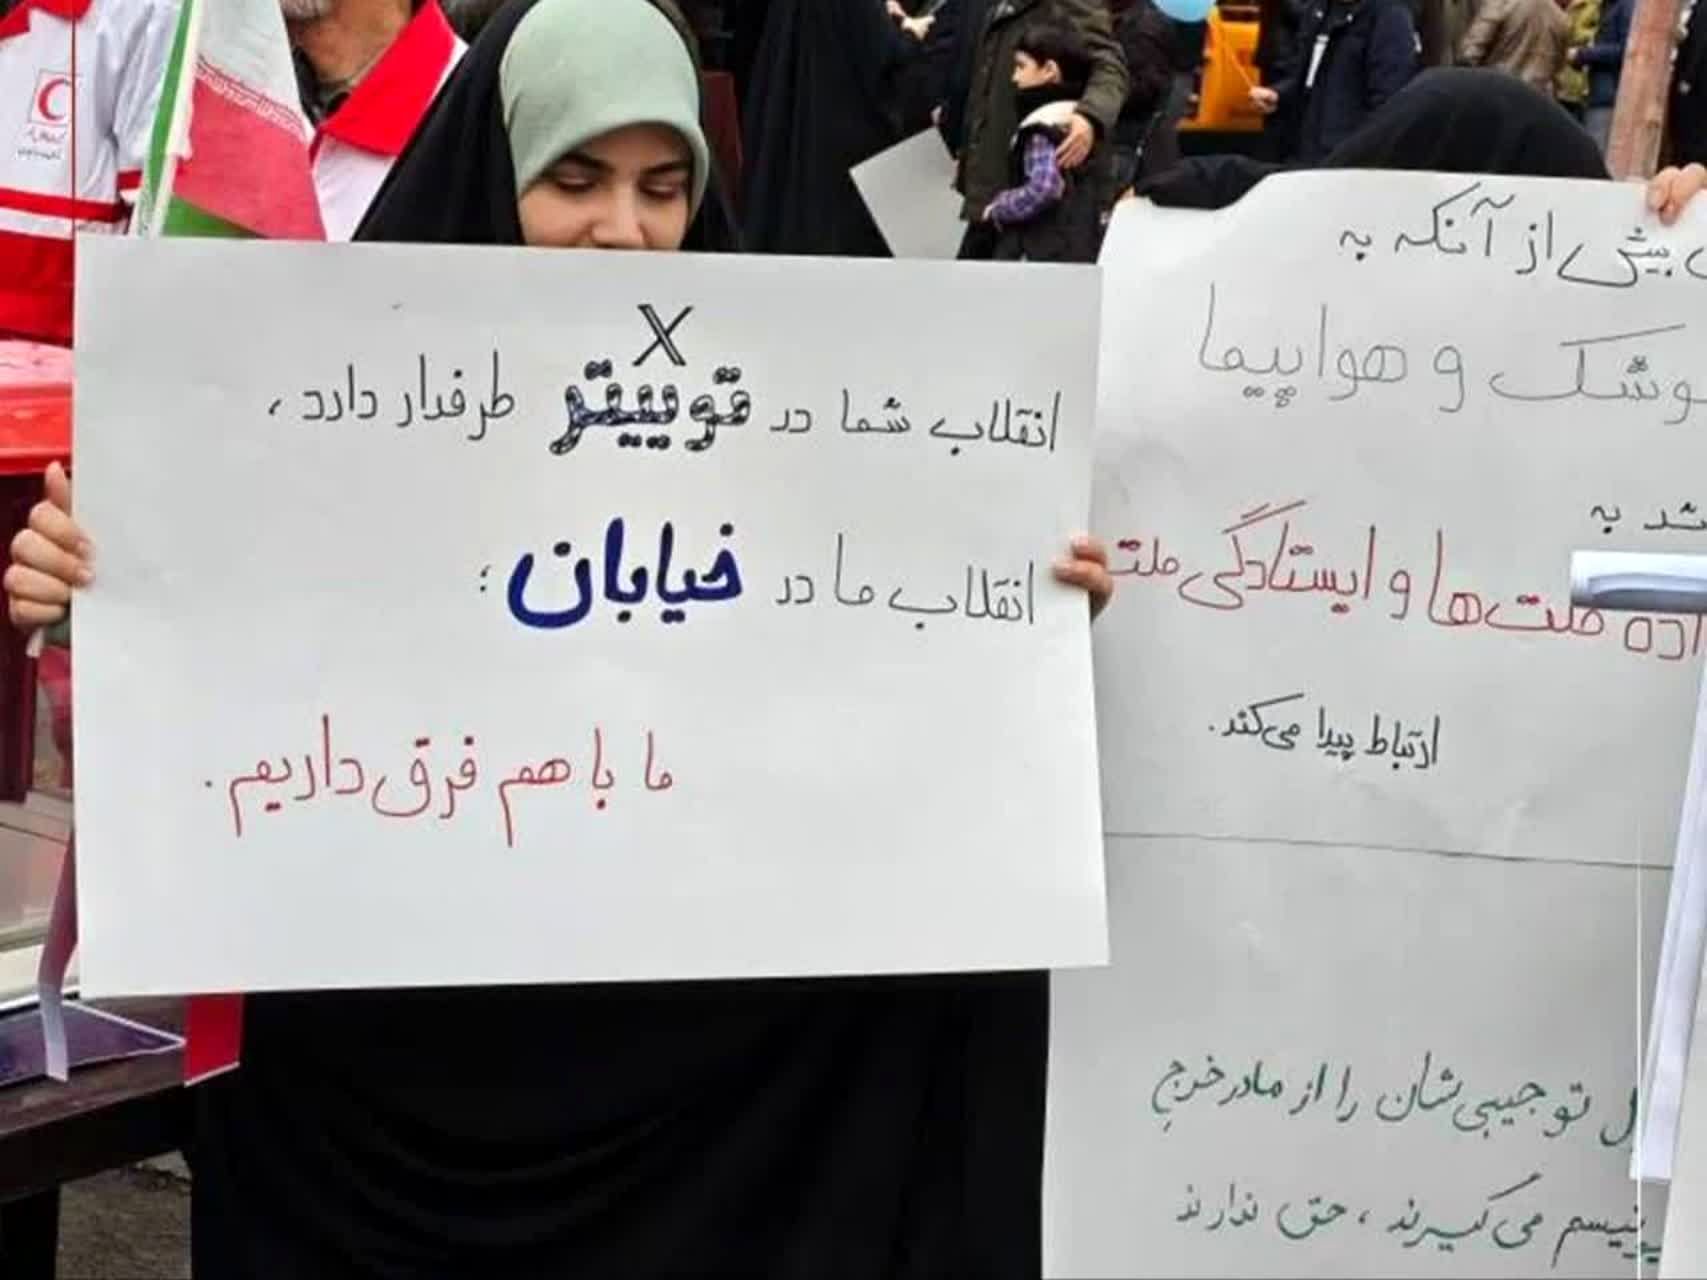 X
انقلاب شما در توییتر طرفدار دارد،
انقلاب ما در خیابان؛
ما با هم فرق داریم.
بیش از آنکه به
و هواپیما
به
ملت‌ها و ایستادگی ملت
ارتباط پیدا می‌کند.
توجیبی‌شان را از مادرخرجِ
می‌گیرند، حق ندارند